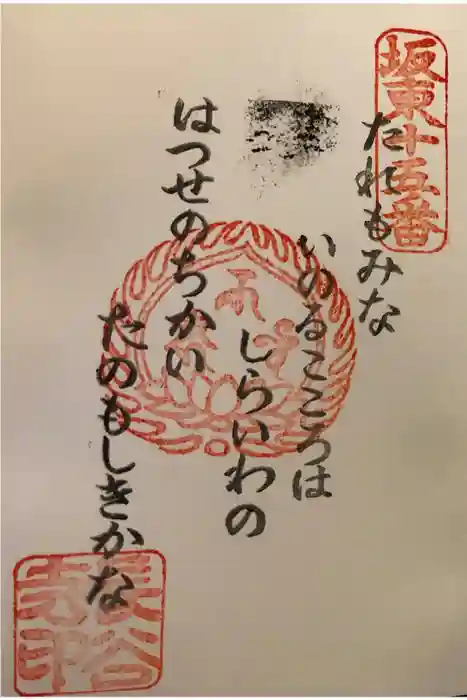 坂東十五番
たれもみな
いのるこころは
しらいわの
はつせのちかい
たのもしきかな
長谷
寺印